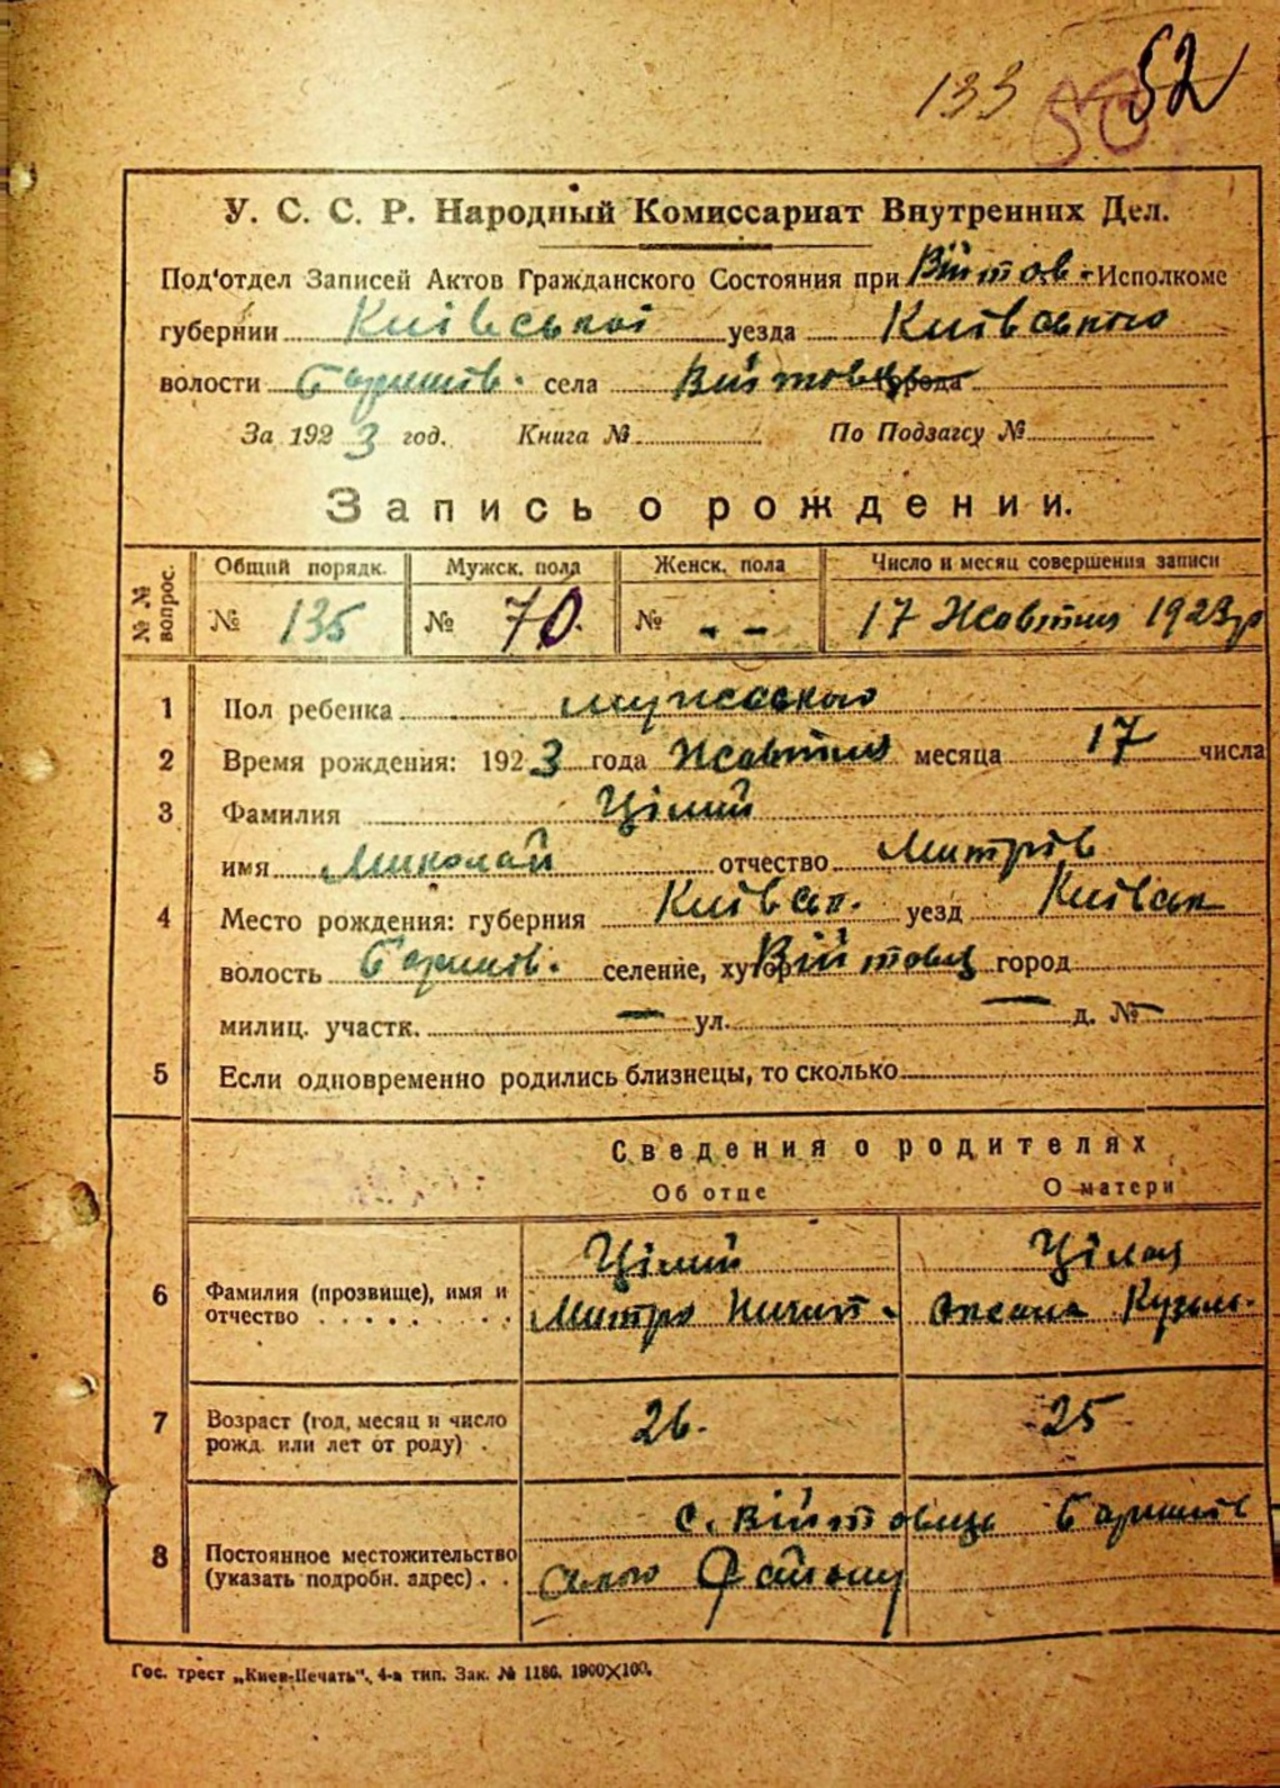 133 52
У. С. С. Р. Народный Комиссариат Внутренних Дел.
Под'отдел Записей Актов Гражданского Состояния при Війтов. Исполкоме
губернии Київської уезда Київського
волости Баришів. села Війтовці города
За 1923 год. Книга № По Подзагсу №
Запись о рождении.
№ № вопрос. Общий порядк. Мужск. пола Женск. пола Число и месяц совершения записи
№ 135 № 70. № - - 17 Жовтня 1923 р
1 Пол ребенка мужського
2 Время рождения: 1923 года Жовтня месяца 17 числа
3 Фамилия Цілий
имя Миколай отчество Митрів
4 Место рождения: губерния Київськ. уезд Київськ
волость Баришів. селение, хутор Війтовці город
милиц. участк. — ул. — д. № —
5 Если одновременно родились близнецы, то сколько
Сведения о родителях
Об отце О матери
6 Фамилия (прозвище), имя и отчество Цілий Цілая
Митро Никит. Оксана Кузьм.
7 Возраст (год, месяц и число рожд. или лет от роду) . 26. 25
8 Постоянное местожительство (указать подробн. адрес) . . с. Війтовці Баришів
ського Району
Гос. трест „Киев-Печать", 4-я тип. Зак. № 1186. 1900×100.